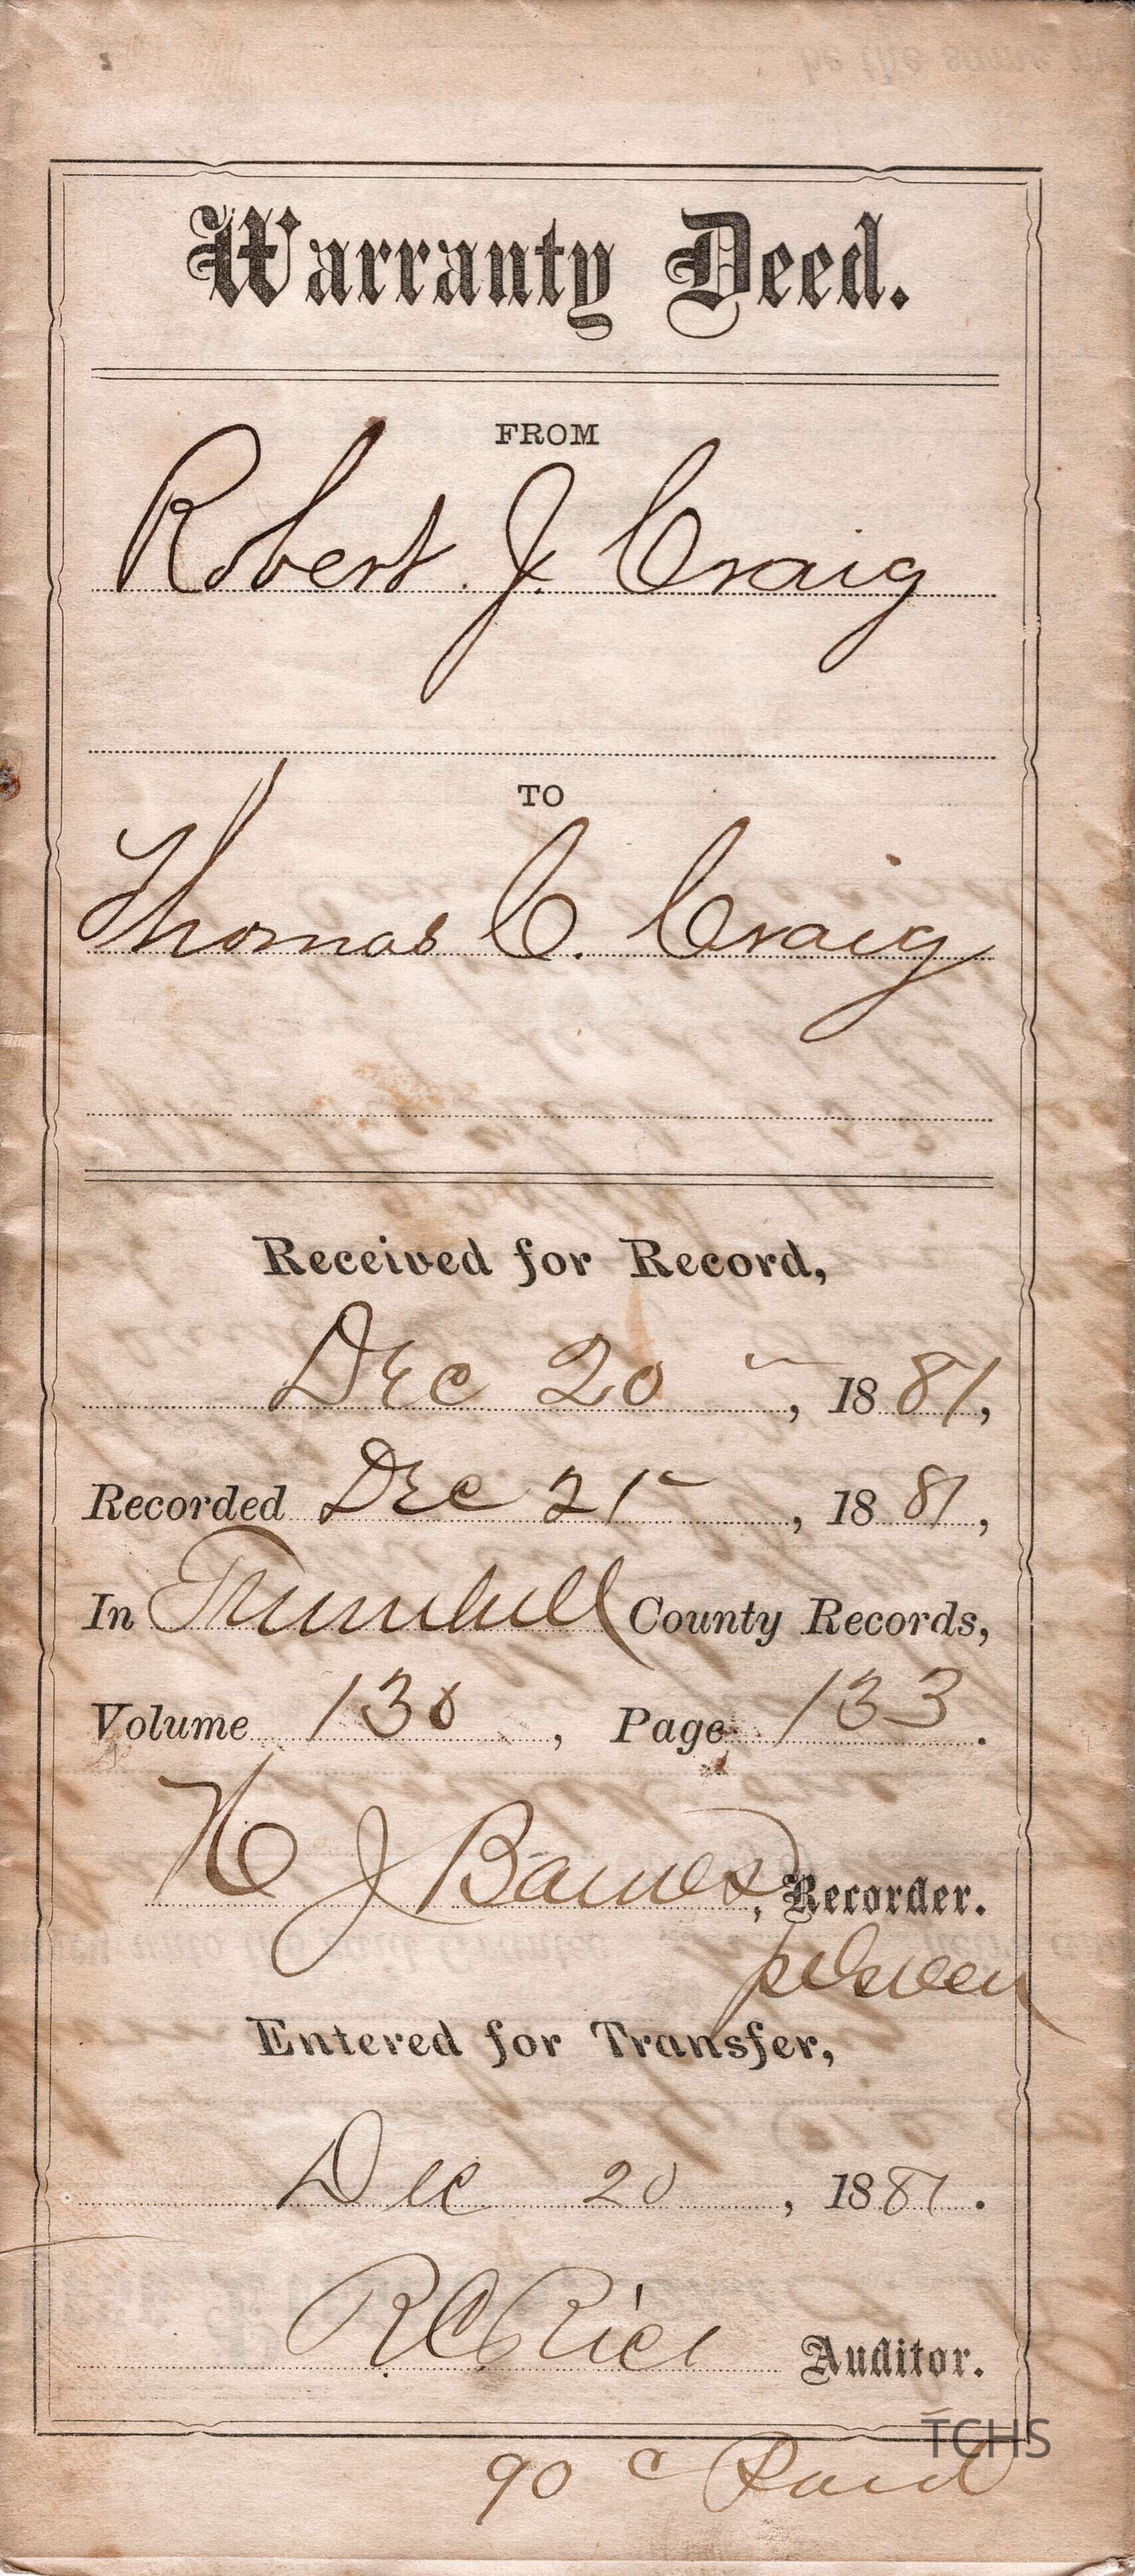 Warranty Deed.
FROM
Robert J. Craig
TO
Thomas C. Craig
Received for Record,
Dec 20, 1881,
Recorded Dec 21, 1881,
In Trumbull County Records,
Volume 130, Page 133.
H J Barnes, Recorder.
Entered for Transfer,
Dec 20, 1881.
R C Rice Auditor.
TCHS
90 c Paid